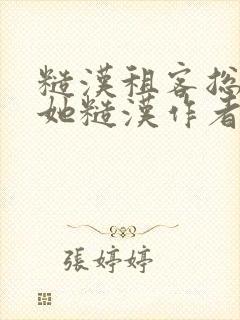 糙漢租客总
她糙漢作者
張婷婷